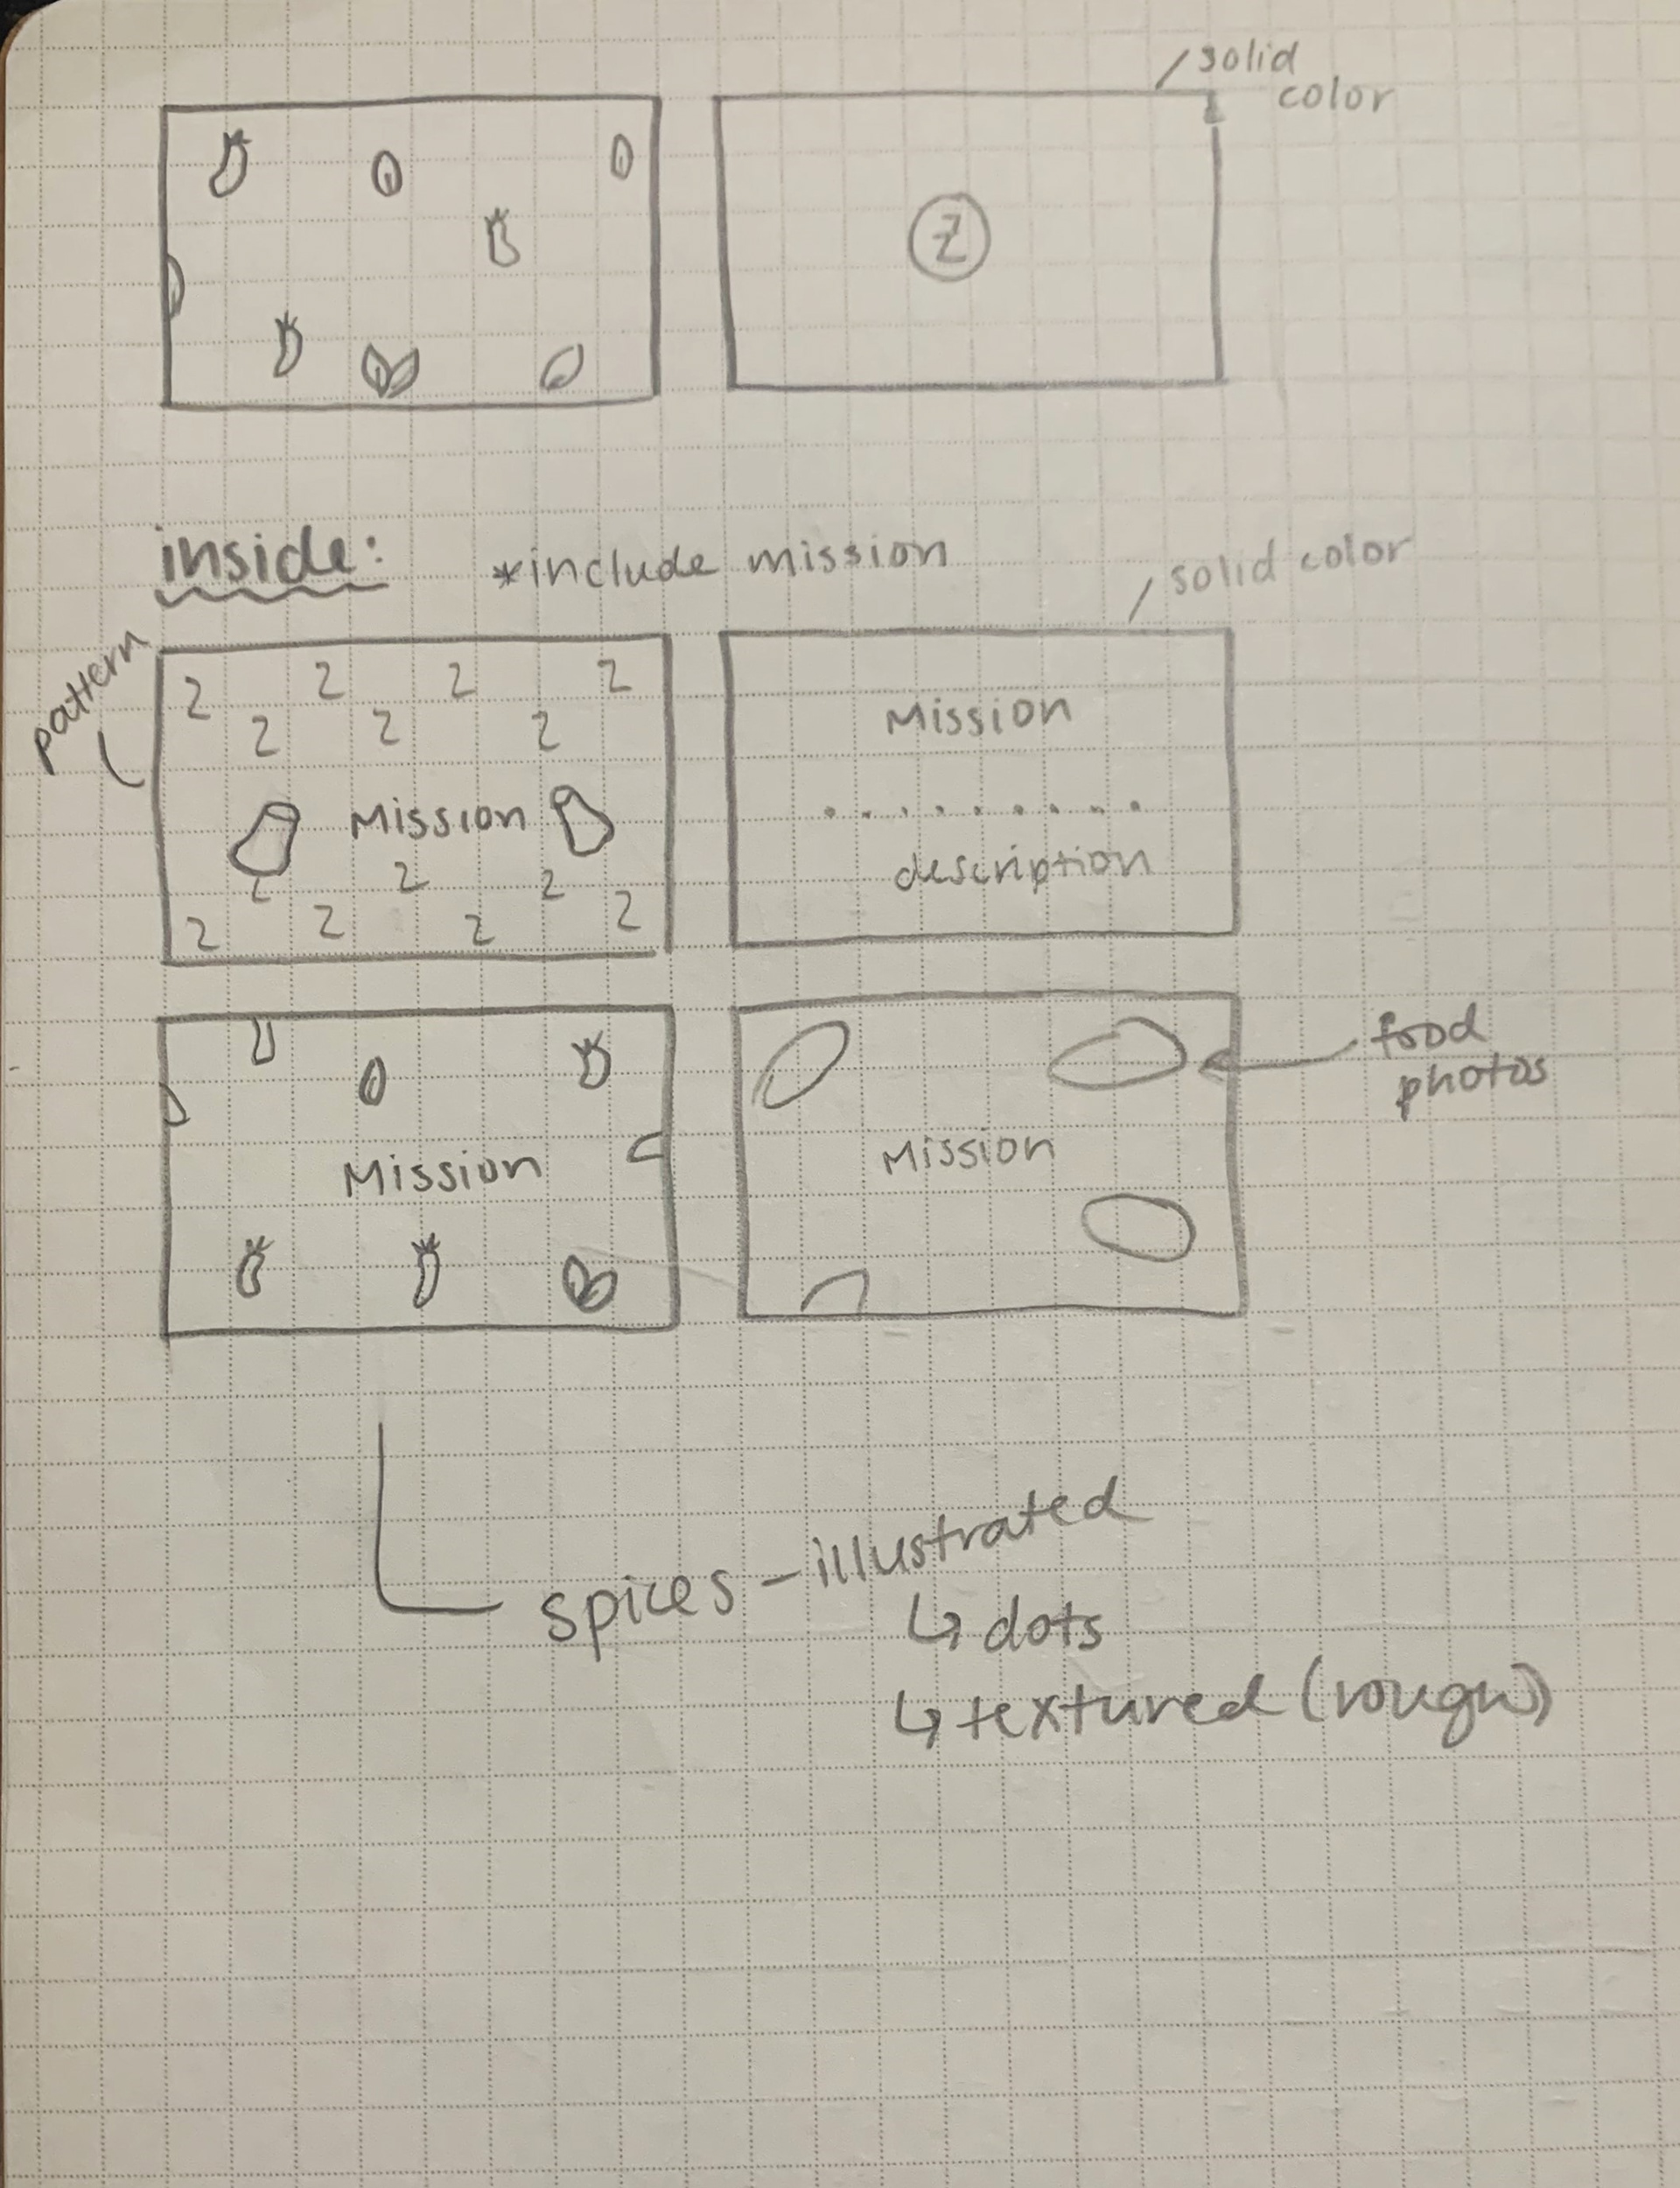 solid
color
Z
inside:
*include mission
solid color
pattern
2 2 2 2
2 2 2
Mission
2 2 2
2 2 2 2
Mission
.........
description
Mission
Mission
food
photos
spices - illustrated
↳ dots
↳ textured (rough)